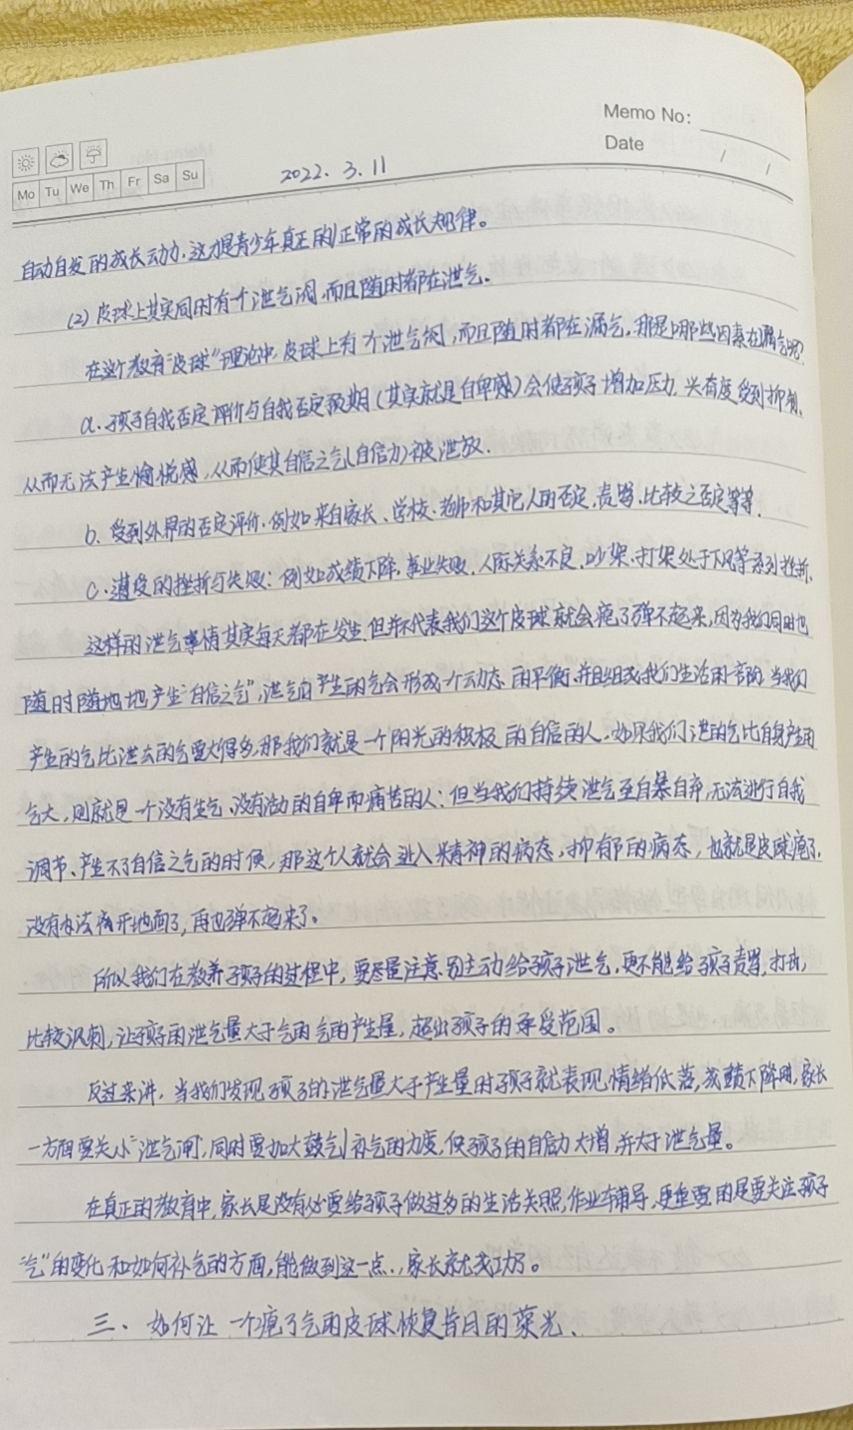 Memo No:
Date / /
Mo Tu We Th Fr Sa Su
2022. 3. 11
自动自发的成长动力,这才是青少年真正的正常的成长规律。
(2) 皮球上其实同时有个泄气阀,而且随时都在泄气.
在这个教育"皮球"理论中,皮球上有个泄气阀,而且随时都在漏气,那是哪些因素在漏气呢?
a. 孩子自我否定评价与自我否定预期(其实就是自卑感)会使孩子增加压力,兴奋度受到抑制,
从而无法产生愉悦感,从而使其自信之气(自信力)被泄放.
b. 受到外界的否定评价,例如来自家长、学校、老师和其它人的否定,责骂,比较之否定等等.
c. 遭受的挫折与失败:例如成绩下降,事业失败,人际关系不良,吵架,打架处于下风等系列挫折.
这样的泄气事情其实每天都在发生,但并不代表我们这个皮球就会瘪了弹不起来,因为我们同时也
随时随地地产生"自信之气",泄气的产生的气会形成一个动态的平衡,并且组成我们生活的一部分,当我们
产生的气比泄去的气要大得多,那我们就是一个阳光的积极的自信的人,如果我们泄的气比自身产生的
气大,则就是一个没有生气、没有活力的自卑而痛苦的人;但当我们持续泄气至自暴自弃,无法进行自我
调节、产生不了自信之气的时候,那这个人就会进入精神的病态,抑郁的病态,也就是皮球瘪了,
没有办法离开地面了,再也弹不起来了。
所以我们在教养子孩子的过程中,要尽量注意别主动给孩子泄气,更不能给孩子责骂,打击,
比较讽刺,让孩子的泄气量大于气的气的产生量,超出孩子的承受范围。
反过来讲,当我们发现孩子的泄气量大于产生量时孩子就表现情绪低落,成绩下降时,家长
一方面要关小"泄气阀",同时要加大鼓气补气的力度,使孩子的自信力大增,并大于泄气量。
在真正的教育中,家长是没有必要给孩子做过多的生活关照,作业辅导,更重要的是要关注孩子
"气"的变化和如何补气的方面,能做到这一点.,家长就成功了。
三、如何让一个瘪了气的皮球恢复昔日的荣光、